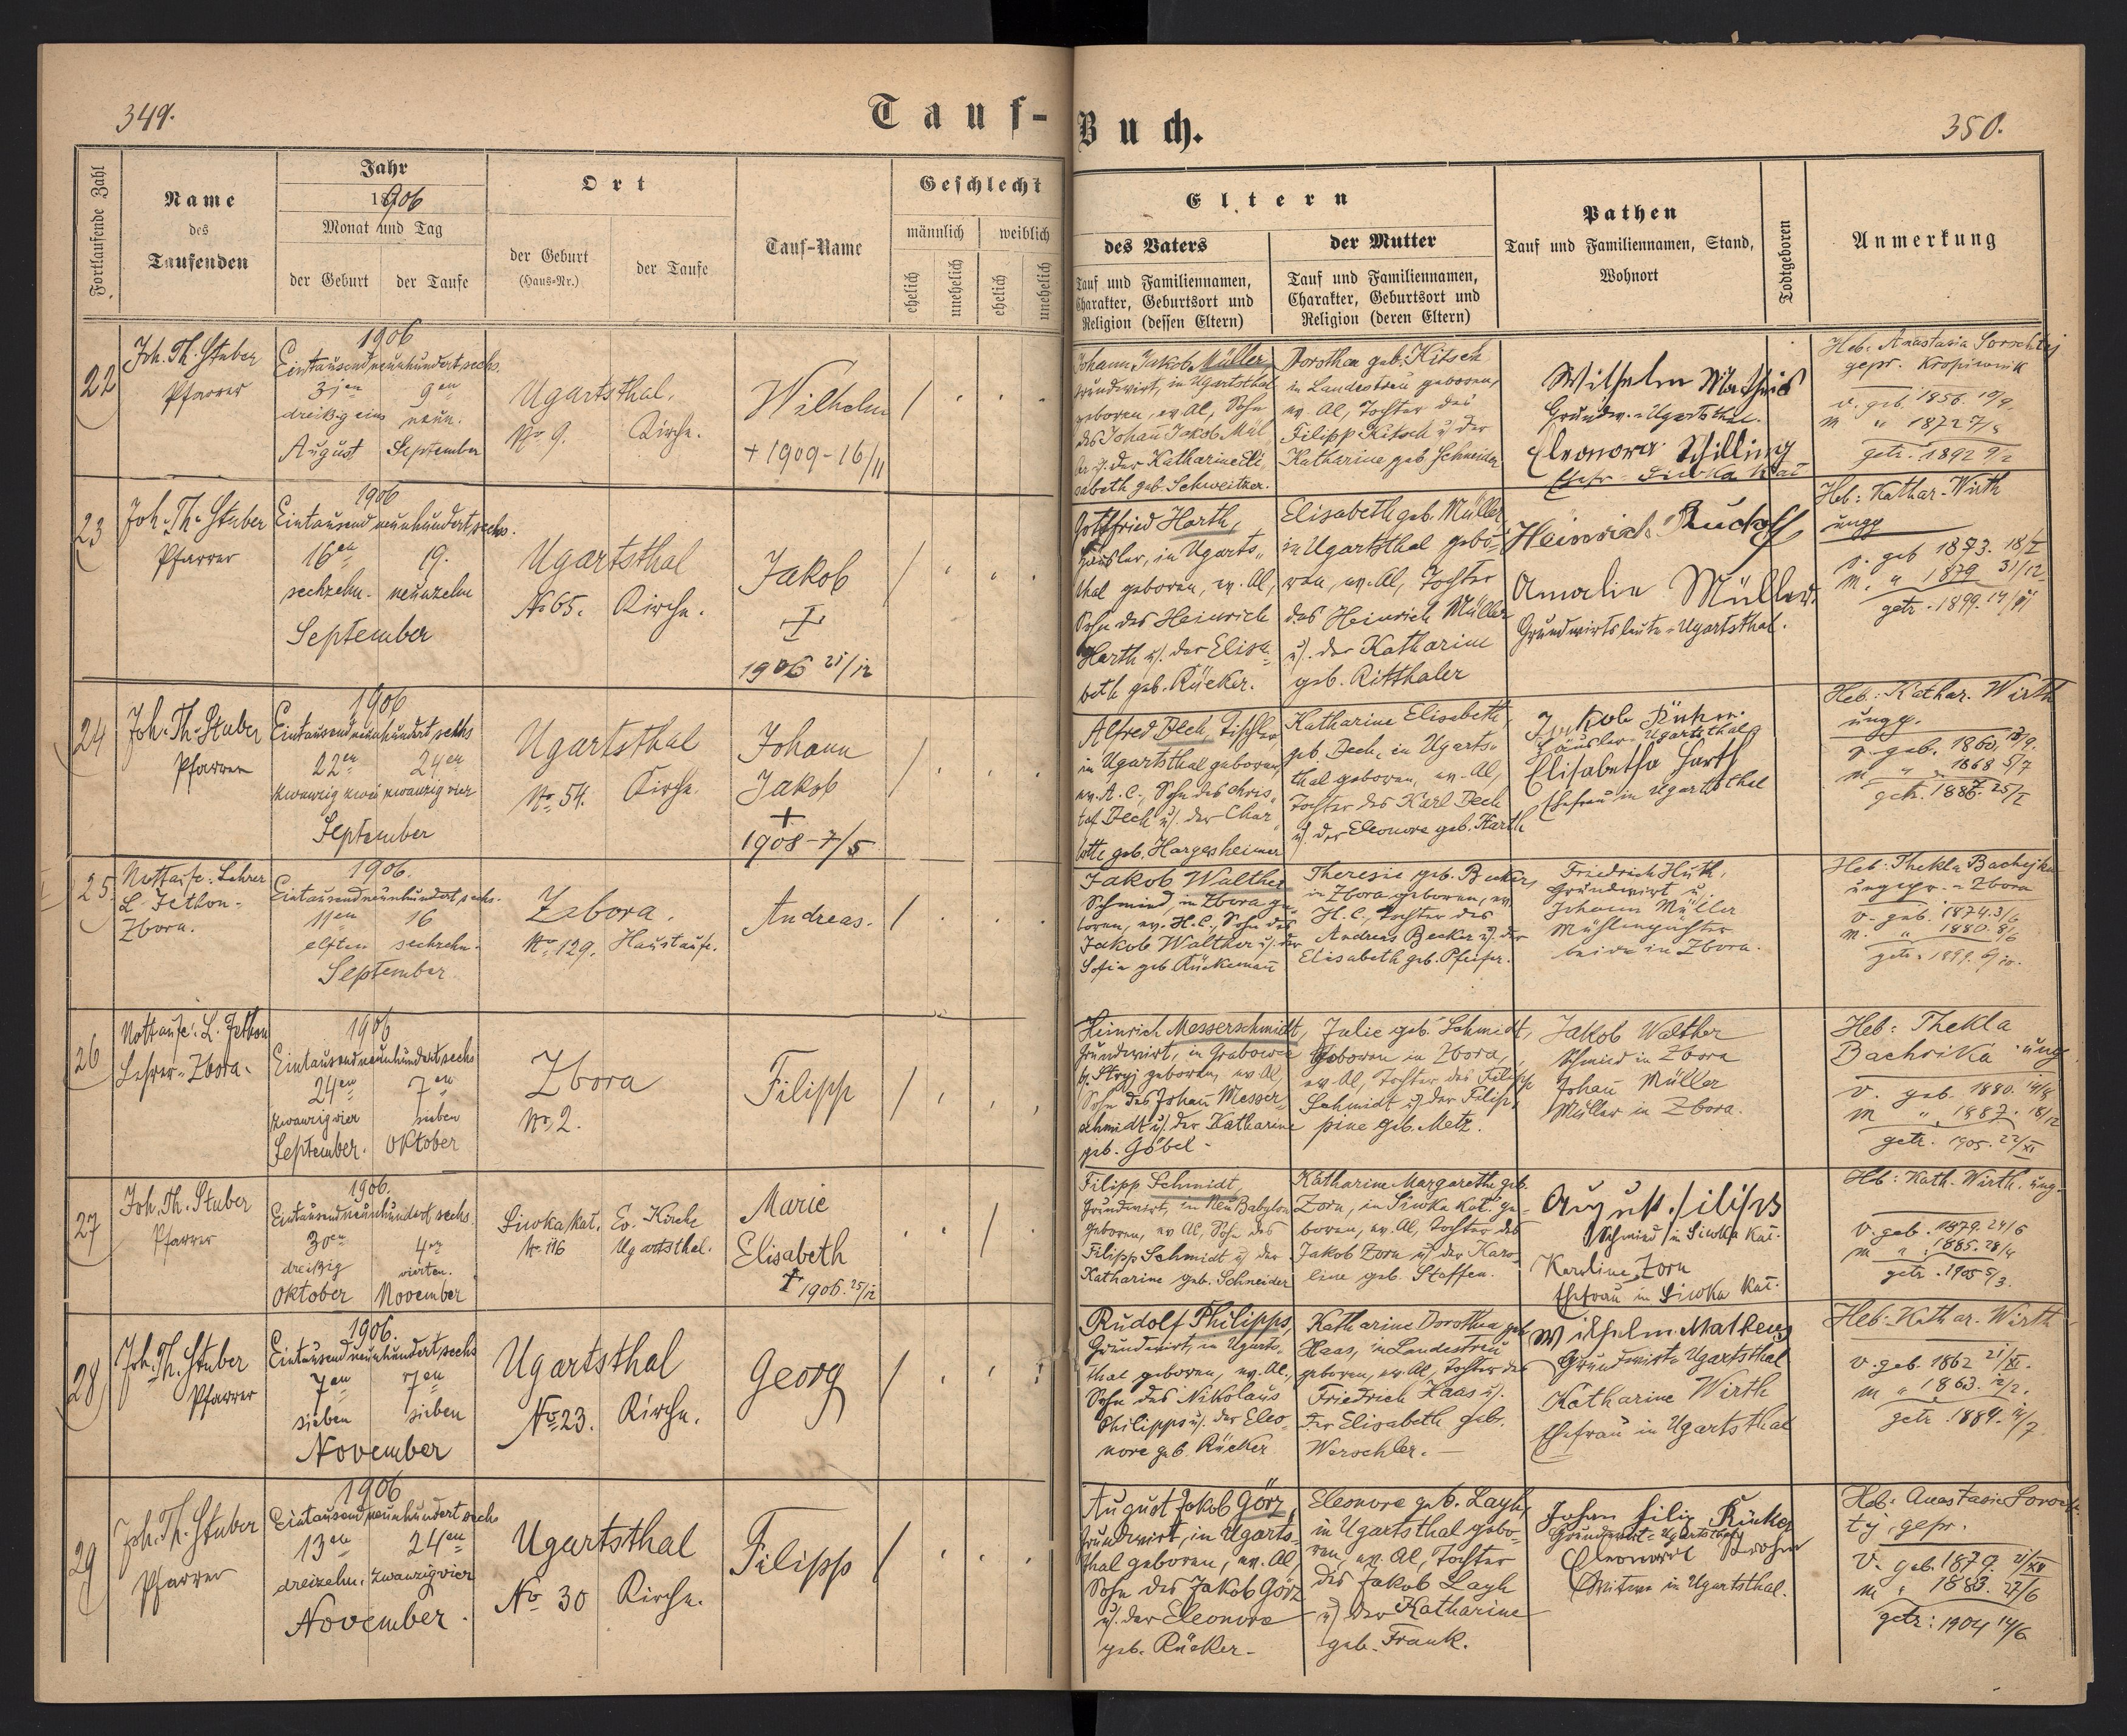 349.
Tauf-
Buch.
350.
Fortlaufende Zahl
Name
des
Taufenden
Jahr
1906
Monat und Tag
der Geburt
der Taufe
Ort
der Geburt
(Haus-Nr.)
der Taufe
Tauf-Name
Geschlecht
männlich
weiblich
ehelich
unehelich
ehelich
unehelich
Eltern
des Vaters
Tauf und Familiennamen,
Charakter, Geburtsort und
Religion (dessen Eltern)
der Mutter
Tauf und Familiennamen,
Charakter, Geburtsort und
Religion (deren Eltern)
Pathen
Tauf und Familiennamen, Stand,
Wohnort
Todtgeboren
Anmerkung
22
Joh. Th. Stuber
Pfarrer
1906
Eintausendneunhundertsechs.
31en
9en
dreißigeins
neun.
August
September
Ugartsthal.
No. 9.
Kirche.
Wilhelm
+ 1909 - 16/11
Johann Jakob Müller,
Grundwirt, in Ugartsthal
geboren, ev. Al, Sohn
des Johann Jakob Mül
ler u. der Katharine Eli
sabeth geb. Schweitzer.
Dorothea geb. Kitsch
in Landestreu geboren,
ev. Al, Tochter des
Filipp Kitsch u. der
Katharine geb Schneider
Wilhelm Matheis
Grundw. = Ugartsthal.
Eleonora Schilling
Ehefr = Siwka Kat
Heb: Anastasia
gepr. Kropiwnik
v. geb. 1856. 10/9.
m " 1872
getr. 1892 9/2
23
Joh. Th. Stuber
Pfarrer
1906
Eintausendneunhundertsechs.
16en
19.
sechzehn.
neunzehn
September
Ugartsthal
No 65.
Kirche.
Jakob
+
1906 25/12
Gottfried Harth,
Häusler, in Ugarts-
thal geboren, ev. Al,
Sohn des Heinrich
Harth u. der Elisa-
beth geb. Rücker.
Elisabeth geb. Müller
in Ugartsthal gebo-
ren, ev. Al, Tochter
des Heinrich Müller
u. der Katharine
geb. Ritthaler
Heinrich Rudolf
Amalia Müller.
Grundwirtsleute = Ugartsthal.
Heb: Kathar. Wirth
ungp
v. geb 1873. 18/I
m. " 1879 31/12
getr. 1899.
24
Joh. Th. Stuber
Pfarrer
1906
Eintausendneunhundert sechs
22en
24en
zwanzig zwei
zwanzig vier
September
Ugartsthal
No. 54.
Kirche.
Johann
Jakob
+
1908 - 7/5
Alfred Dech, Tischler,
in Ugartsthal geboren,
ev. A. C., Sohn des Chris-
tof Dech u. der Char-
lotte geb. Hargesheimer
Katharine Elisabeth,
geb. Dech, in Ugarts-
thal geboren, ev. Al,
Tochter des Karl Dech
u. der Eleonore geb. Harth
Jakob
Häusler = Ugartsthal
Elisabetha Harth
Ehefrau in Ugartsthal
Heb: Kathar. Wirth
ungp.
v. geb. 1860.
m " 1868 5/7
getr. 1886. 25/I
25
Nottaufe: Lehrer
L. Jethon-
Zbora.
1906.
Eintausendneunhundert sechs.
11en
16
elften
sechzehn.
September
Zbora.
No. 129.
Haustaufe.
Andreas.
Jakob Walther
Schmied in Zbora ge
boren, ev. H. C., Sohn des
Jakob Walther u. der
Sofie geb Rückemann
Theresie geb. Becker,
in Zbora geboren, ev.
H. C., Tochter des
Andreas Becker u. der
Elisabeth geb. Pfeifer.
Friedrich Huth,
Grundwirt u.
Johann Müller
Mühlenpächter
beide in Zbora.
Heb: Thekla
ungepr. = Zbora
v. geb. 1874. 3/6
m. " 1880. 8/6
getr. 1899.
26
Nottaufe: L. Jethon
Lehrer = Zbora.
1906
Eintausendneunhundertsechs
24en
7en
zwanzigvier
sieben
September.
Oktober
Zbora
No. 2.
Filipp
Heinrich Messerschmidt,
Grundwirt, in Grabowce
b. Stryj geboren, ev. Al,
Sohn des Johann Messer-
schmidt u. der Katharine
geb. Göbel-
Julie geb. Schmidt,
Geboren in Zbora,
ev. Al, Tochter des Filipp
Schmidt u. der Filip-
pine geb. Metz.
Jakob Walther
Schmied in Zbora
Johann Müller
Müller in Zbora.
Heb: Thekla
Bachrika ung
v. geb. 1880.
m " 1887. 18/12
getr. 1905. 22/XI
27
Joh. Th. Stuber
Pfarrer
1906.
Eintausendneunhundert sechs.
30en
4en
dreißig
vierten.
Oktober
November
Siwka kat.
No. 116
Ev. Kirche
Ugartsthal.
Marie
Elisabeth
+ 1906. 25/12
Filipp Schmidt,
Grundwirt, in Neu Babylon
geboren, ev Al, Sohn des
Filipp Schmidt u. der
Katharine geb. Schneider
Katharine Margarethe geb.
Zorn, in Siwka Kat. ge-
boren, ev. Al, Tochter des
Jakob Zorn u. der Karo-
line geb. Staffen.
August Filips
Schmied in Siwka Kat.
Karoline Zorn
Ehefrau in Siwka Kat.
Hb: Kath. Wirth. ung-
v. geb. 1879. 24/6
m " 1885. 28/4
getr. 1905 5/3.
28
Joh. Th. Stuber
Pfarrer
1906.
Eintausendneunhundertsechs
7en
7en
sieben
sieben
November
Ugartsthal
No 23.
Kirche.
Georg
Rudolf Philipps,
Grundwirt, in Ugarts-
thal geboren, ev. Al,
Sohn des Nikolaus
Philipps u. der Eleo-
nore geb. Rücker
Katharine Dorothea geb
Haas, in Landestreu
geboren, ev. Al, Tochter des
Friedrich Haas u.
der Elisabeth geb.
Werschler. —
Wilhelm Matheus
Grundwirt = Ugartsthal
Katharine Wirth
Ehefrau in Ugartsthal
Heb: Kathar. Wirth
v. geb. 1862 21/XI.
m " 1863. 12/2.
getr. 1884.
29
Joh. Th. Stuber
Pfarrer
1906
Eintausendneunhundert sechs
13en
24en
dreizehn.
zwanzigvier
November.
Ugartsthal
No 30
Kirche.
Filipp
August Jakob Görz,
Grundwirt, in Ugarts-
thal geboren, ev. Al,
Sohn des Jakob Görz
u. der Eleonore
geb. Rücker-
Eleonore geb. Layh,
in Ugartsthal gebo-
ren, ev. Al, Tochter
des Jakob Layh
u. der Katharine
geb. Frank.
Johan Filip Rücker
Grundwirt = Ugartsthal
Eleonore
Witwe in Ugartsthal.
Heb: Anastasia
gepr.
V. geb. 1879. 21/XII
m " 1883. 27/6
getr: 1904 14/6